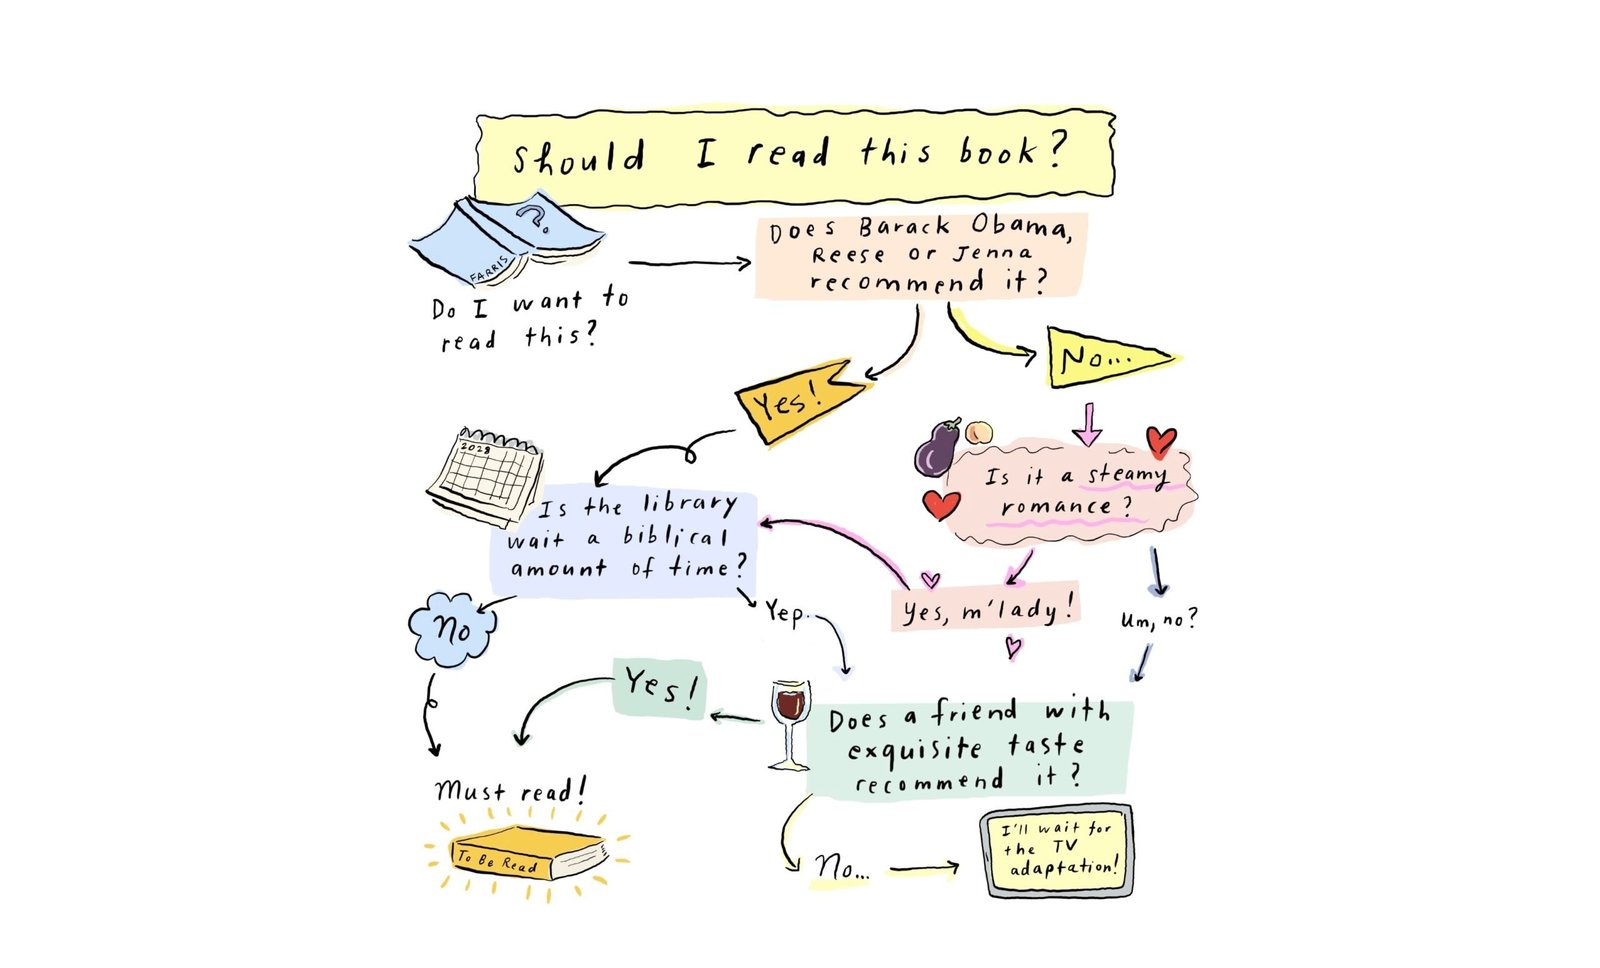 Should I read this book?
?
FARRIS
Do I want to
read this?
Does Barack Obama,
Reese or Jenna
recommend it?
Yes!
No...
2028
Is it a steamy
romance?
Is the library
wait a biblical
amount of time?
Yes, m'lady!
Um, no?
No
Yep.
Yes!
Does a friend with
exquisite taste
recommend it?
Must read!
To Be Read
No...
I'll wait for
the TV
adaptation!